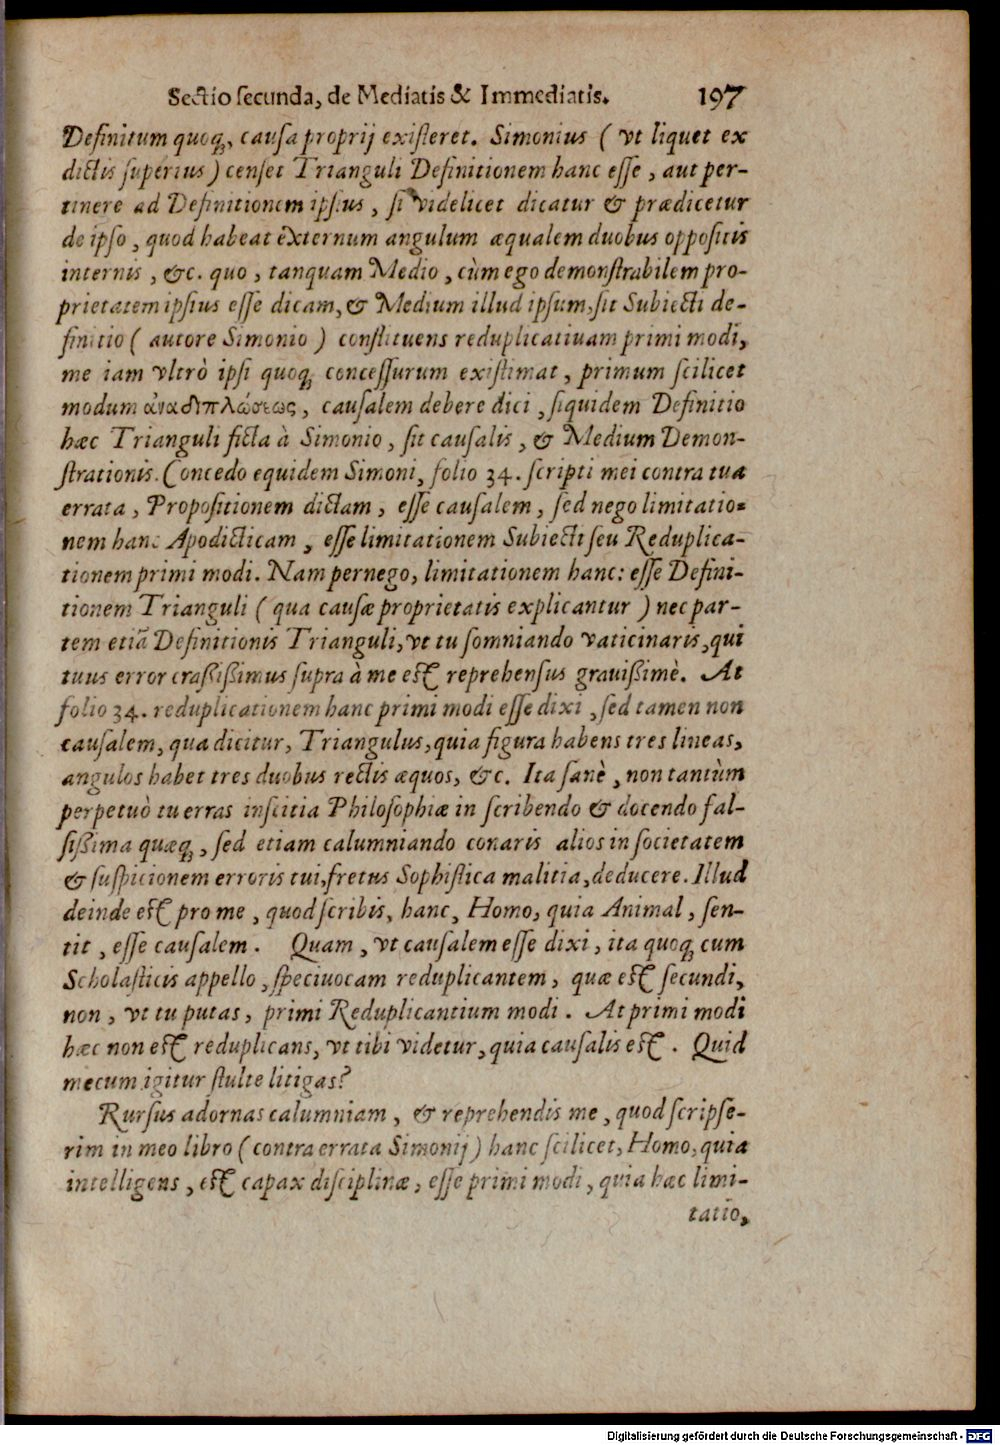 Sectio secunda, de Mediatis & Immediatis. 197
Definitum quoq;, causa proprij existeret. Simonius ( vt liquet ex
dictis superius ) censet Trianguli Definitionem hanc esse, aut per-
tinere ad Definitionem ipsius, si videlicet dicatur & prædicetur
de ipso, quod habeat externum angulum æqualem duobus oppositis
internis, &c. quo, tanquam Medio, cùm ego demonstrabilem pro-
prietatem ipsius esse dicam, & Medium illud ipsum, sit Subiecti de-
finitio ( autore Simonio ) constituens reduplicatiuam primi modi,
me iam vltrò ipsi quoq; concessurum existimat, primum scilicet
modum ἀναδιπλώσεως, causalem debere dici, siquidem Definitio
hæc Trianguli ficta à Simonio, sit causalis, & Medium Demon-
strationis. Concedo equidem Simoni, folio 34. scripti mei contra tua
errata, Propositionem dictam, esse causalem, sed nego limitatio-
nem hanc Apodicticam, esse limitationem Subiecti seu Reduplica-
tionem primi modi. Nam pernego, limitationem hanc: esse Defini-
tionem Trianguli ( qua causæ proprietatis explicantur ) nec par-
tem etiã Definitionis Trianguli, vt tu somniando vaticinaris, qui
tuus error crassissimus supra à me est reprehensus grauissimè. At
folio 34. reduplicationem hanc primi modi esse dixi, sed tamen non
causalem, qua dicitur, Triangulus, quia figura habens tres lineas,
angulos habet tres duobus rectis æquos, &c. Ita sanè, non tantùm
perpetuò tu erras inscitia Philosophiæ in scribendo & docendo fal-
sissima quæq;, sed etiam calumniando conaris alios in societatem
& suspicionem erroris tui, fretus Sophistica malitia, deducere. Illud
deinde est pro me, quod scribis, hanc, Homo, quia Animal, sen-
tit, esse causalem. Quam, vt causalem esse dixi, ita quoq; cum
Scholasticis appello, speciuocam reduplicantem, quæ est secundi,
non, vt tu putas, primi Reduplicantium modi. At primi modi
hæc non est reduplicans, vt tibi videtur, quia causalis est. Quid
mecum igitur stulte litigas?
Rursus adornas calumniam, & reprehendis me, quod scripse-
rim in meo libro ( contra errata Simonij ) hanc scilicet, Homo, quia
intelligens, est capax disciplinæ, esse primi modi, quia hæc limi-
tatio,
Digitalisierung gefördert durch die Deutsche Forschungsgemeinschaft - DFG